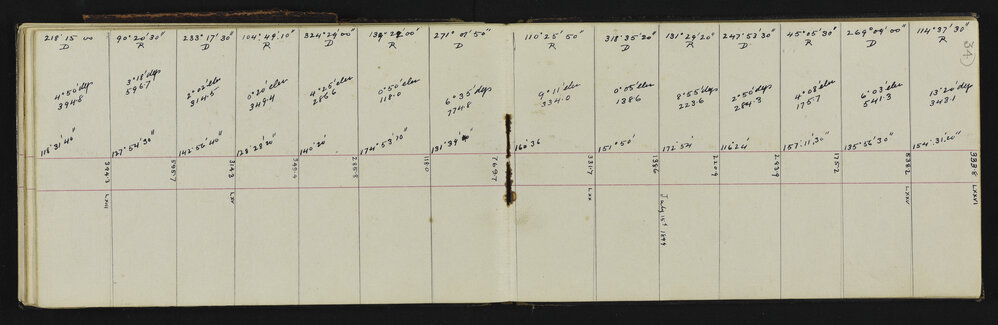 218°15'00
D
4°50' dep
394.8
118°31'40"
394.3
LXII
90°20'30"
R
3°18' dep
596.7
127°54'30"
595.7
233°17'30"
D
2°02' elev
314.5
142°56'40"
314.3
LXV
104°49'10"
R
0°20' elev
349.4
128°28'20"
349.4
324°29'00"
D
4°25' elev
286.6
140°20'
285.8
R
0°50' elev
118.0
174°53'10"
118.0
271°01'50"
D
6°35' dep
774.8
769.7
110°25'50"
R
9°11' elev
334.0
160°36
LXX
318°35'20"
D
0°05' elev
1386
151°50'
1386
July 1st 1899
131°29'20"
R
8°55' dep
223.6
172°54'
247°53'30"
D
2°50' dep
284.3
116°24'
45°05'30"
R
4°08' elev
175.7
157°11'30"
269°09'00"
D
6°03' elev
541.3
135°56'30"
LXXV
114°37'30"
R
13°20' dep
343.1
154°31'20"
333.8
LXXVI
34)